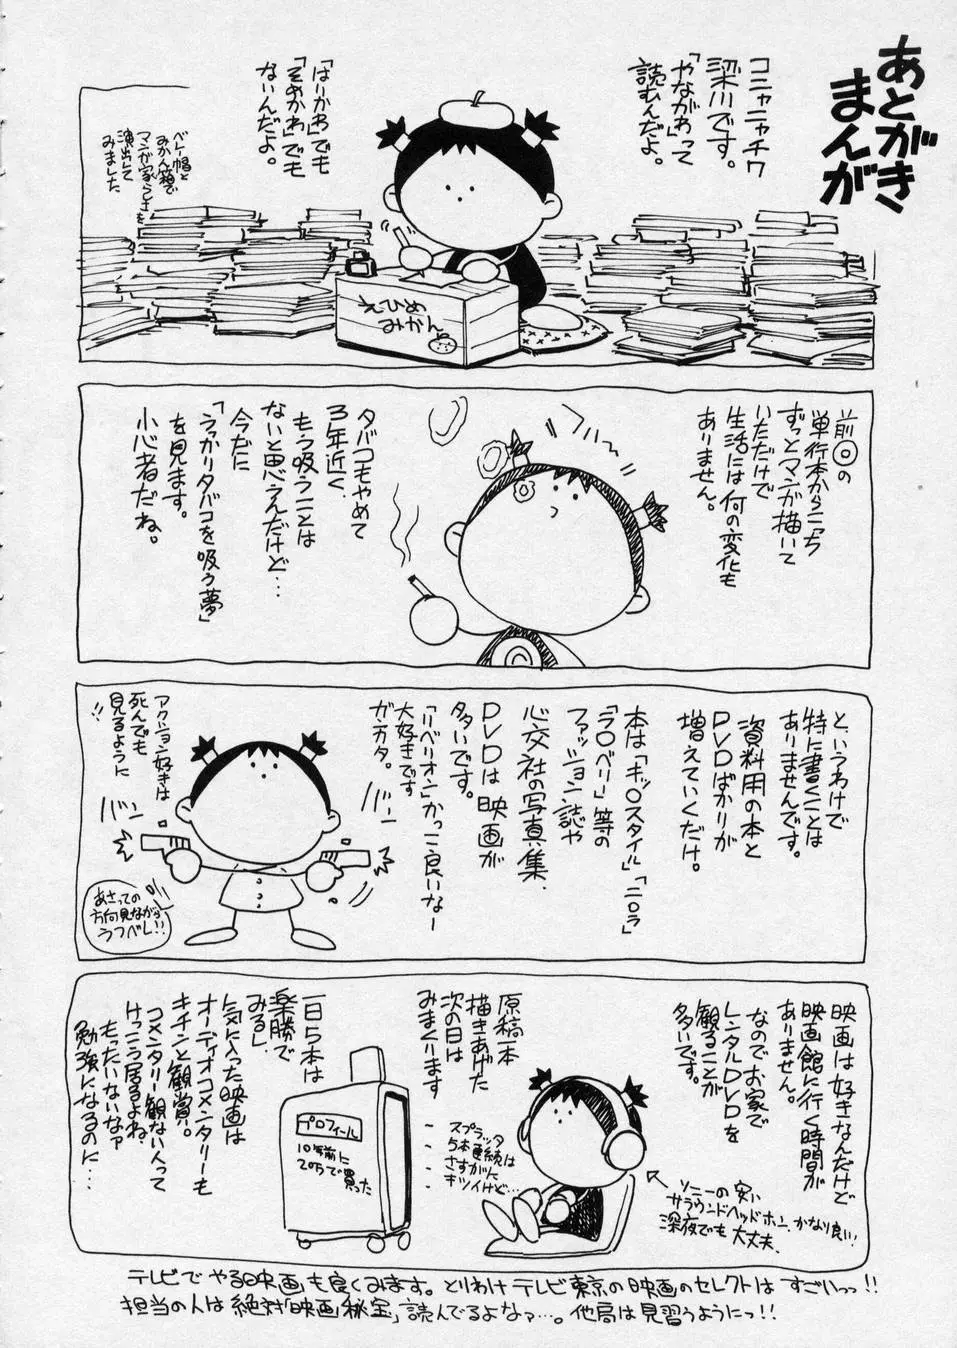 あとがき
まんが
コニャニャチワ
梁川です。
「やながわ」って
読むんだよ。
「はりかわ」でも
「そめかわ」でも
ないんだよ。
ベレー帽と
みかん箱で
マンガ家らしさを
演出して
みました
えひめ
みかん
前回の
単行本からこっち
ずっとマンガ描いて
いただけで
生活には何の変化も
ありません。
タバコもやめて
3年近く、
もう吸うことは
ないと思えんだけど…
今だに
「うっかりタバコを吸う夢」
を見ます。
小心者だね。
というわけで
特に書くことは
ありませんです。
資料用の本と
DVDばかりが
増えていくだけ。
本は「キッ○スタイル」「ニ○ラ」
「ラ○ベリー」等の
ファッション誌や
心交社の写真集、
DVDは映画が
多いです。
「リベリオン」かっこ良いなー
大好きです
ガンカタ。
バンッ
バンッ
アクション好きは
死んでも
見るように
!!
あさっての
方向見ながら
うつべし!!
映画は好きなんだけど
映画館に行く時間が
ありません。
なのでお家で
レンタルDVDを
観ることが
多いです。
ソニーの安い
サラウンドヘッドホン、かなり良い!
深夜でも大丈夫。
原稿一本
描きあげた
次の日は
みまくります
スプラッタ
5本連続は
さすがに
キツイけど…
プロフィール
10年前に
20万で買った
一日5本は
楽勝で
みるし、
気に入った映画は
オーディオコメンタリーも
キチンと観賞。
コメンタリー観ない人って
けっこう居るよね、
もったいないなァ
勉強になるのに…
テレビでやる映画も良くみます。とりわけテレビ東京の映画のセレクトはすごいっっ!!
担当の人は絶対「映画秘宝」読んでるよなァ…。他局は見習うようにっ!!